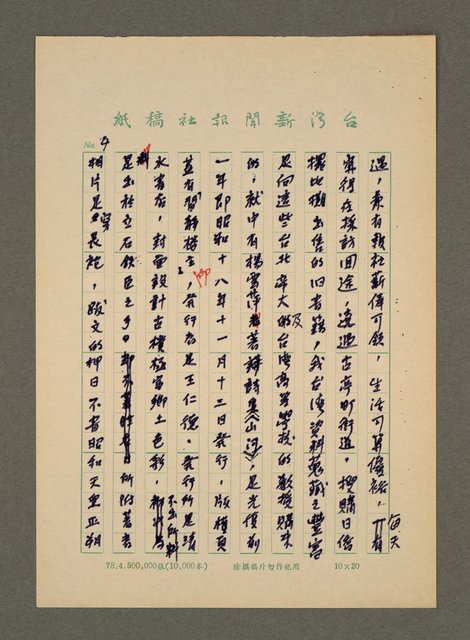 台灣新聞報社稿紙
No 4
過,兼有報社薪俸可領,生活可算優裕,每天
穿行在採訪回途,遶過古亭町街道,搜購日僑
擺地攤出售的旧書籍,我台灣資料蒐藏之豐富
是向這些台北帝大的及台灣高等學校的教授購來
的;就中有楊雲萍著詩集《山河》,是光復前
一年即昭和十八年十一月十三日發行,版權頁
蓋有楊雲萍,發行者是王仁德。發行所是清
水書店,封面設計古樸極富鄉土色彩,不出所料
是出於立石鐵臣之手。所附著者
相片是穿長袍,跋文的押日不書昭和天皇正朔
78.4.500,000張(10,000本) 除撰稿外勿作他用 10×20